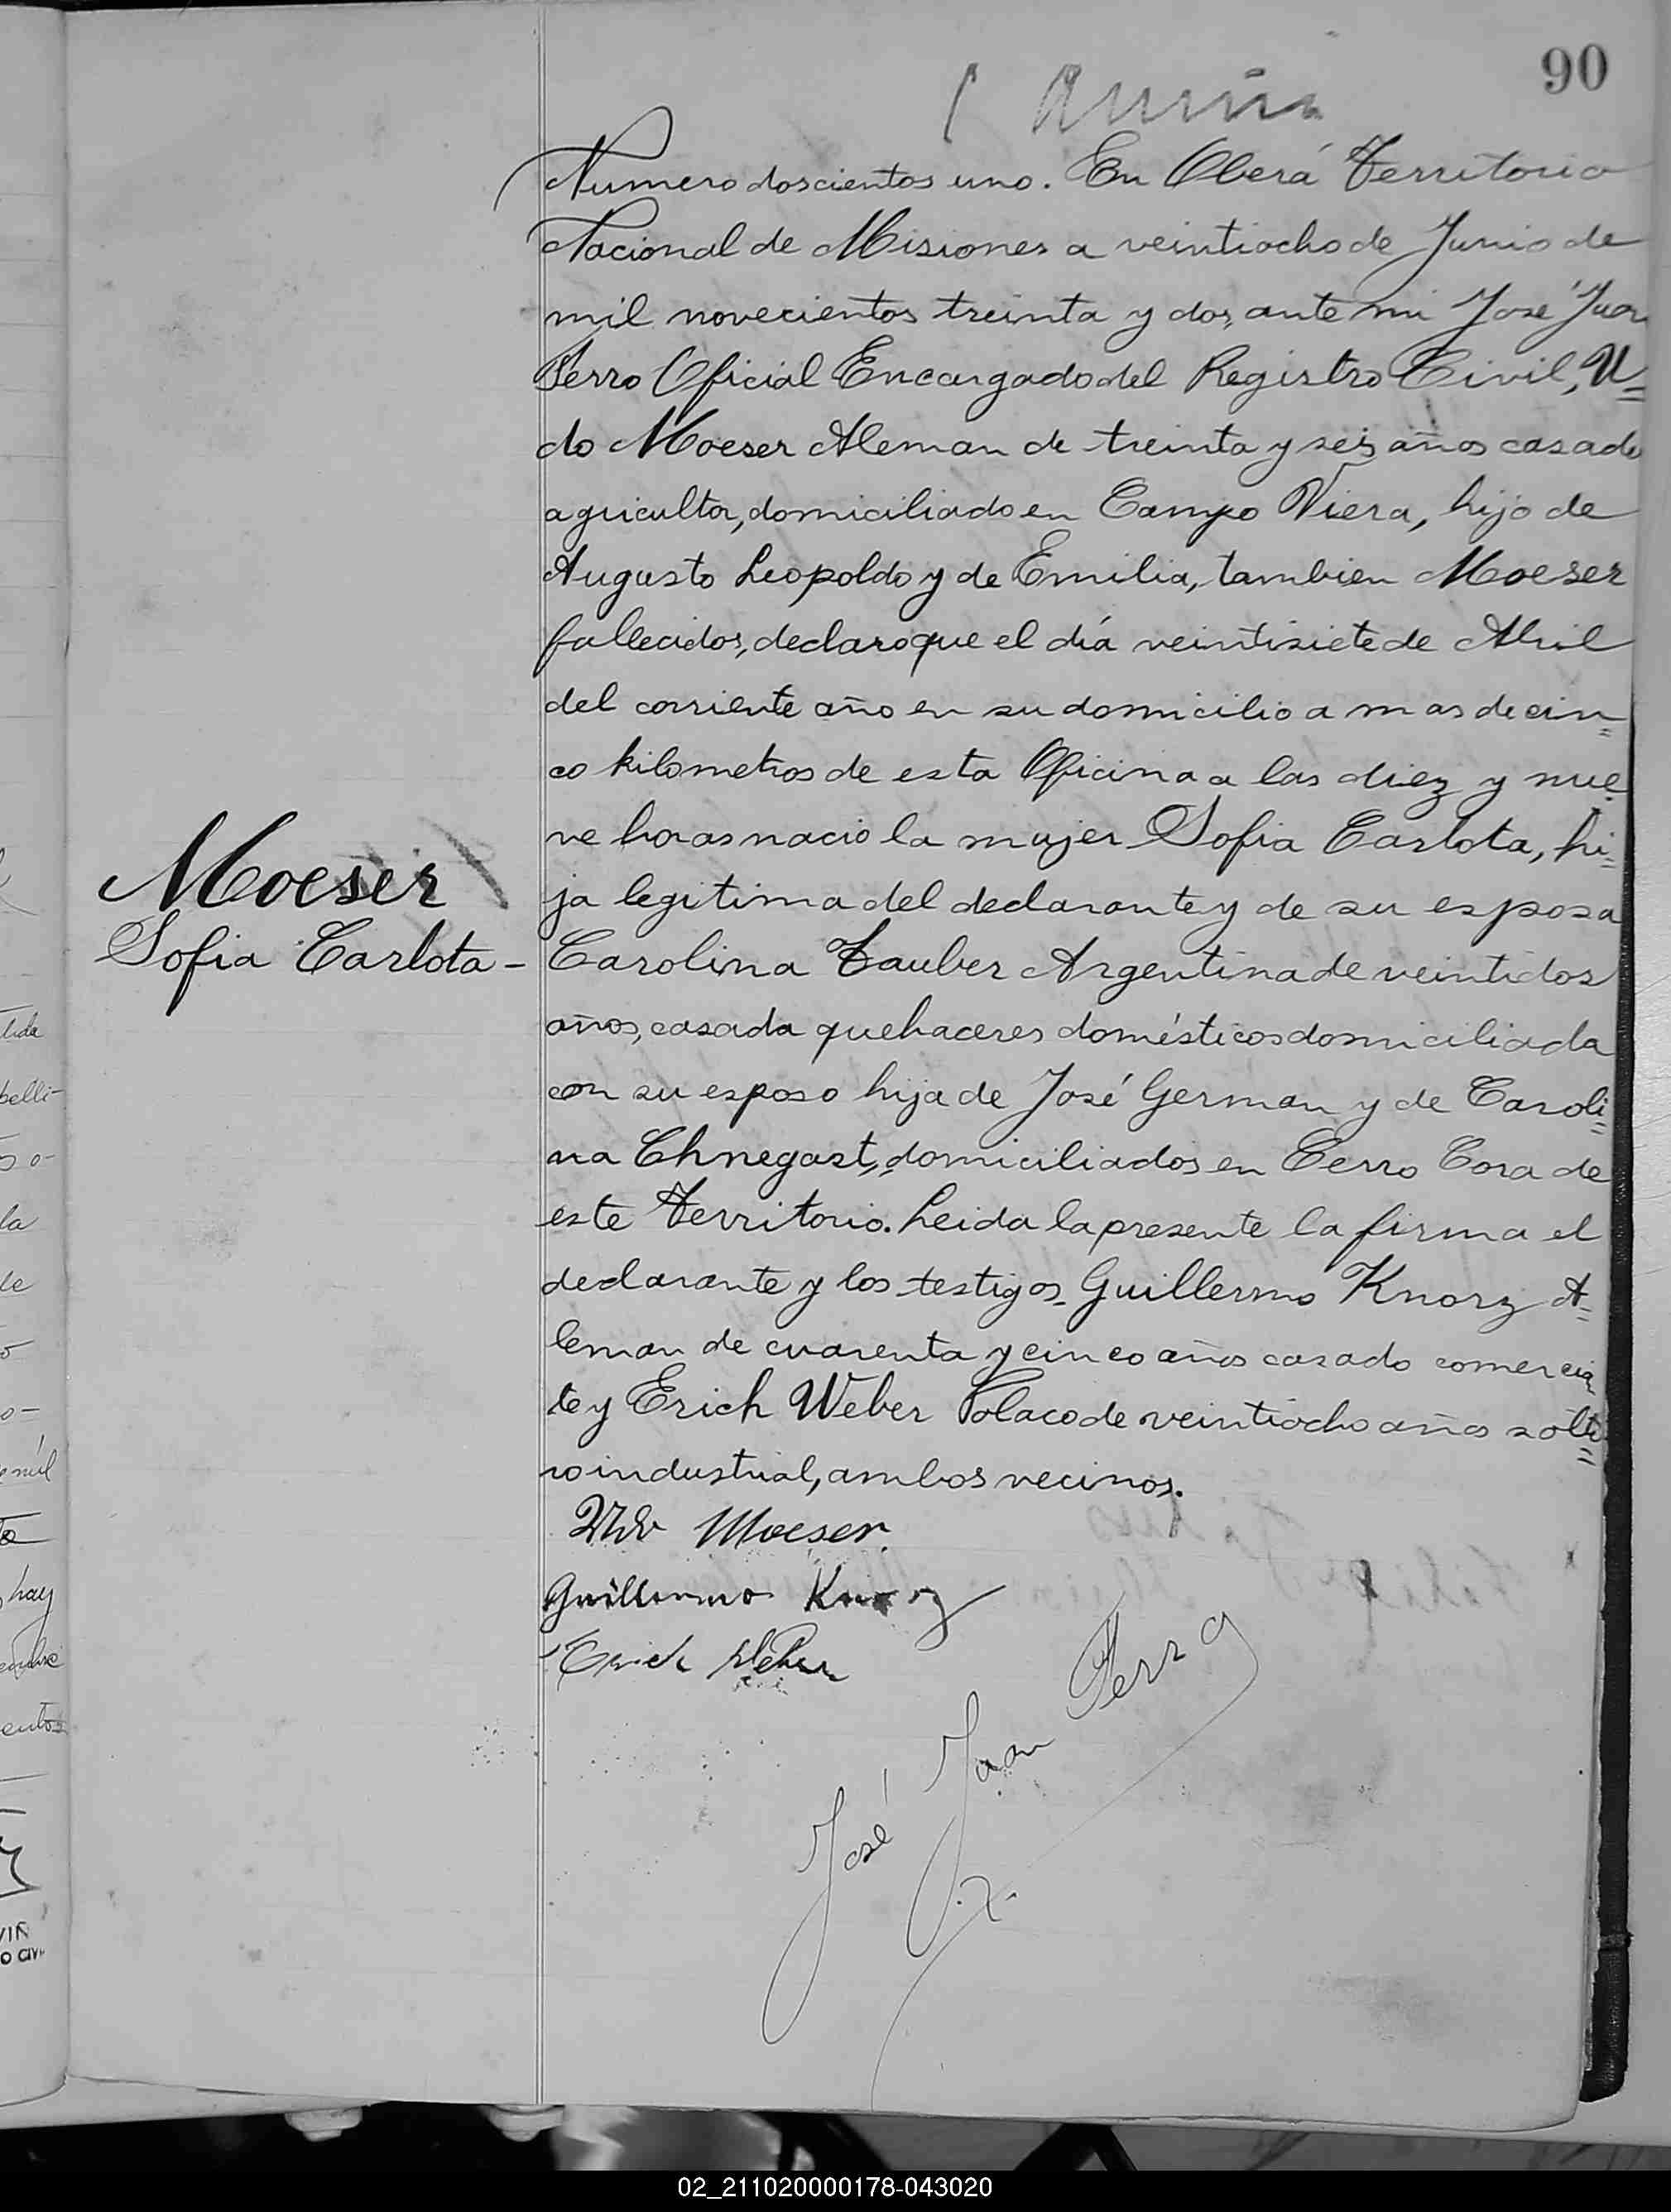 90
Numero doscientos uno. En Oberá Territorio
Nacional de Misiones a veintiocho de Junio de
mil novecientos treinta y dos, ante mi José Juan
Ferro Oficial Encargado del Registro Civil, U=
do Moeser Aleman de treinta y seis años casado
agricultor, domiciliado en Campo Viera, hijo de
Augusto Leopoldo y de Emilia, tambien Moeser
fallecidos, declaro que el día veintisiete de Abril
del corriente año en su domicilio a mas de cin=
co kilometros de esta Oficina a las diez y nue
ve horas nacio la mujer Sofia Carlota, hi=
Moeser
Sofia Carlota-
ja legitima del declarante y de su esposa
Carolina Tauber Argentina de veintidos
años, casada quehaceres domésticos domiciliada
con su esposo hija de José German y de Caroli=
na Chnegast, domiciliados en Cerro Cora de
este Territorio. Leida la presente la firma el
declarante y los testigos Guillermo Knorz A=
leman de cuarenta y cinco años casado comercian
te y Erich Weber Polaco de veintiocho años solte=
ro industrial, ambos vecinos.
Udo Moeser.
Guillermo Knorz
Erich Weber
José Juan Ferro
02_211020000178-043020